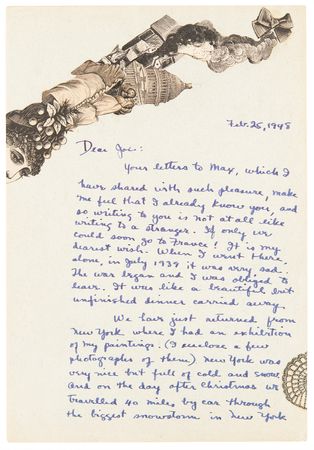 Feb. 25, 1948
Dear Joe:
Your letters to Max, which I
have shared with such pleasure, make
me feel that I already know you, and
so writing to you is not at all like
writing to a stranger. If only we
could soon go to France! It is my
dearest wish. When I went there
alone, in July 1939 it was very sad.
The war began and I was obliged to
leave. It was like a beautiful but
unfinished dinner carried away.
We have just returned from
New York where I had an exhibition
of my paintings. (I enclose a few
photographs of them) New York was
very nice but full of cold and snow.
And on the day after Christmas we
travelled 40 miles by car through
the biggest snowstorm in New York